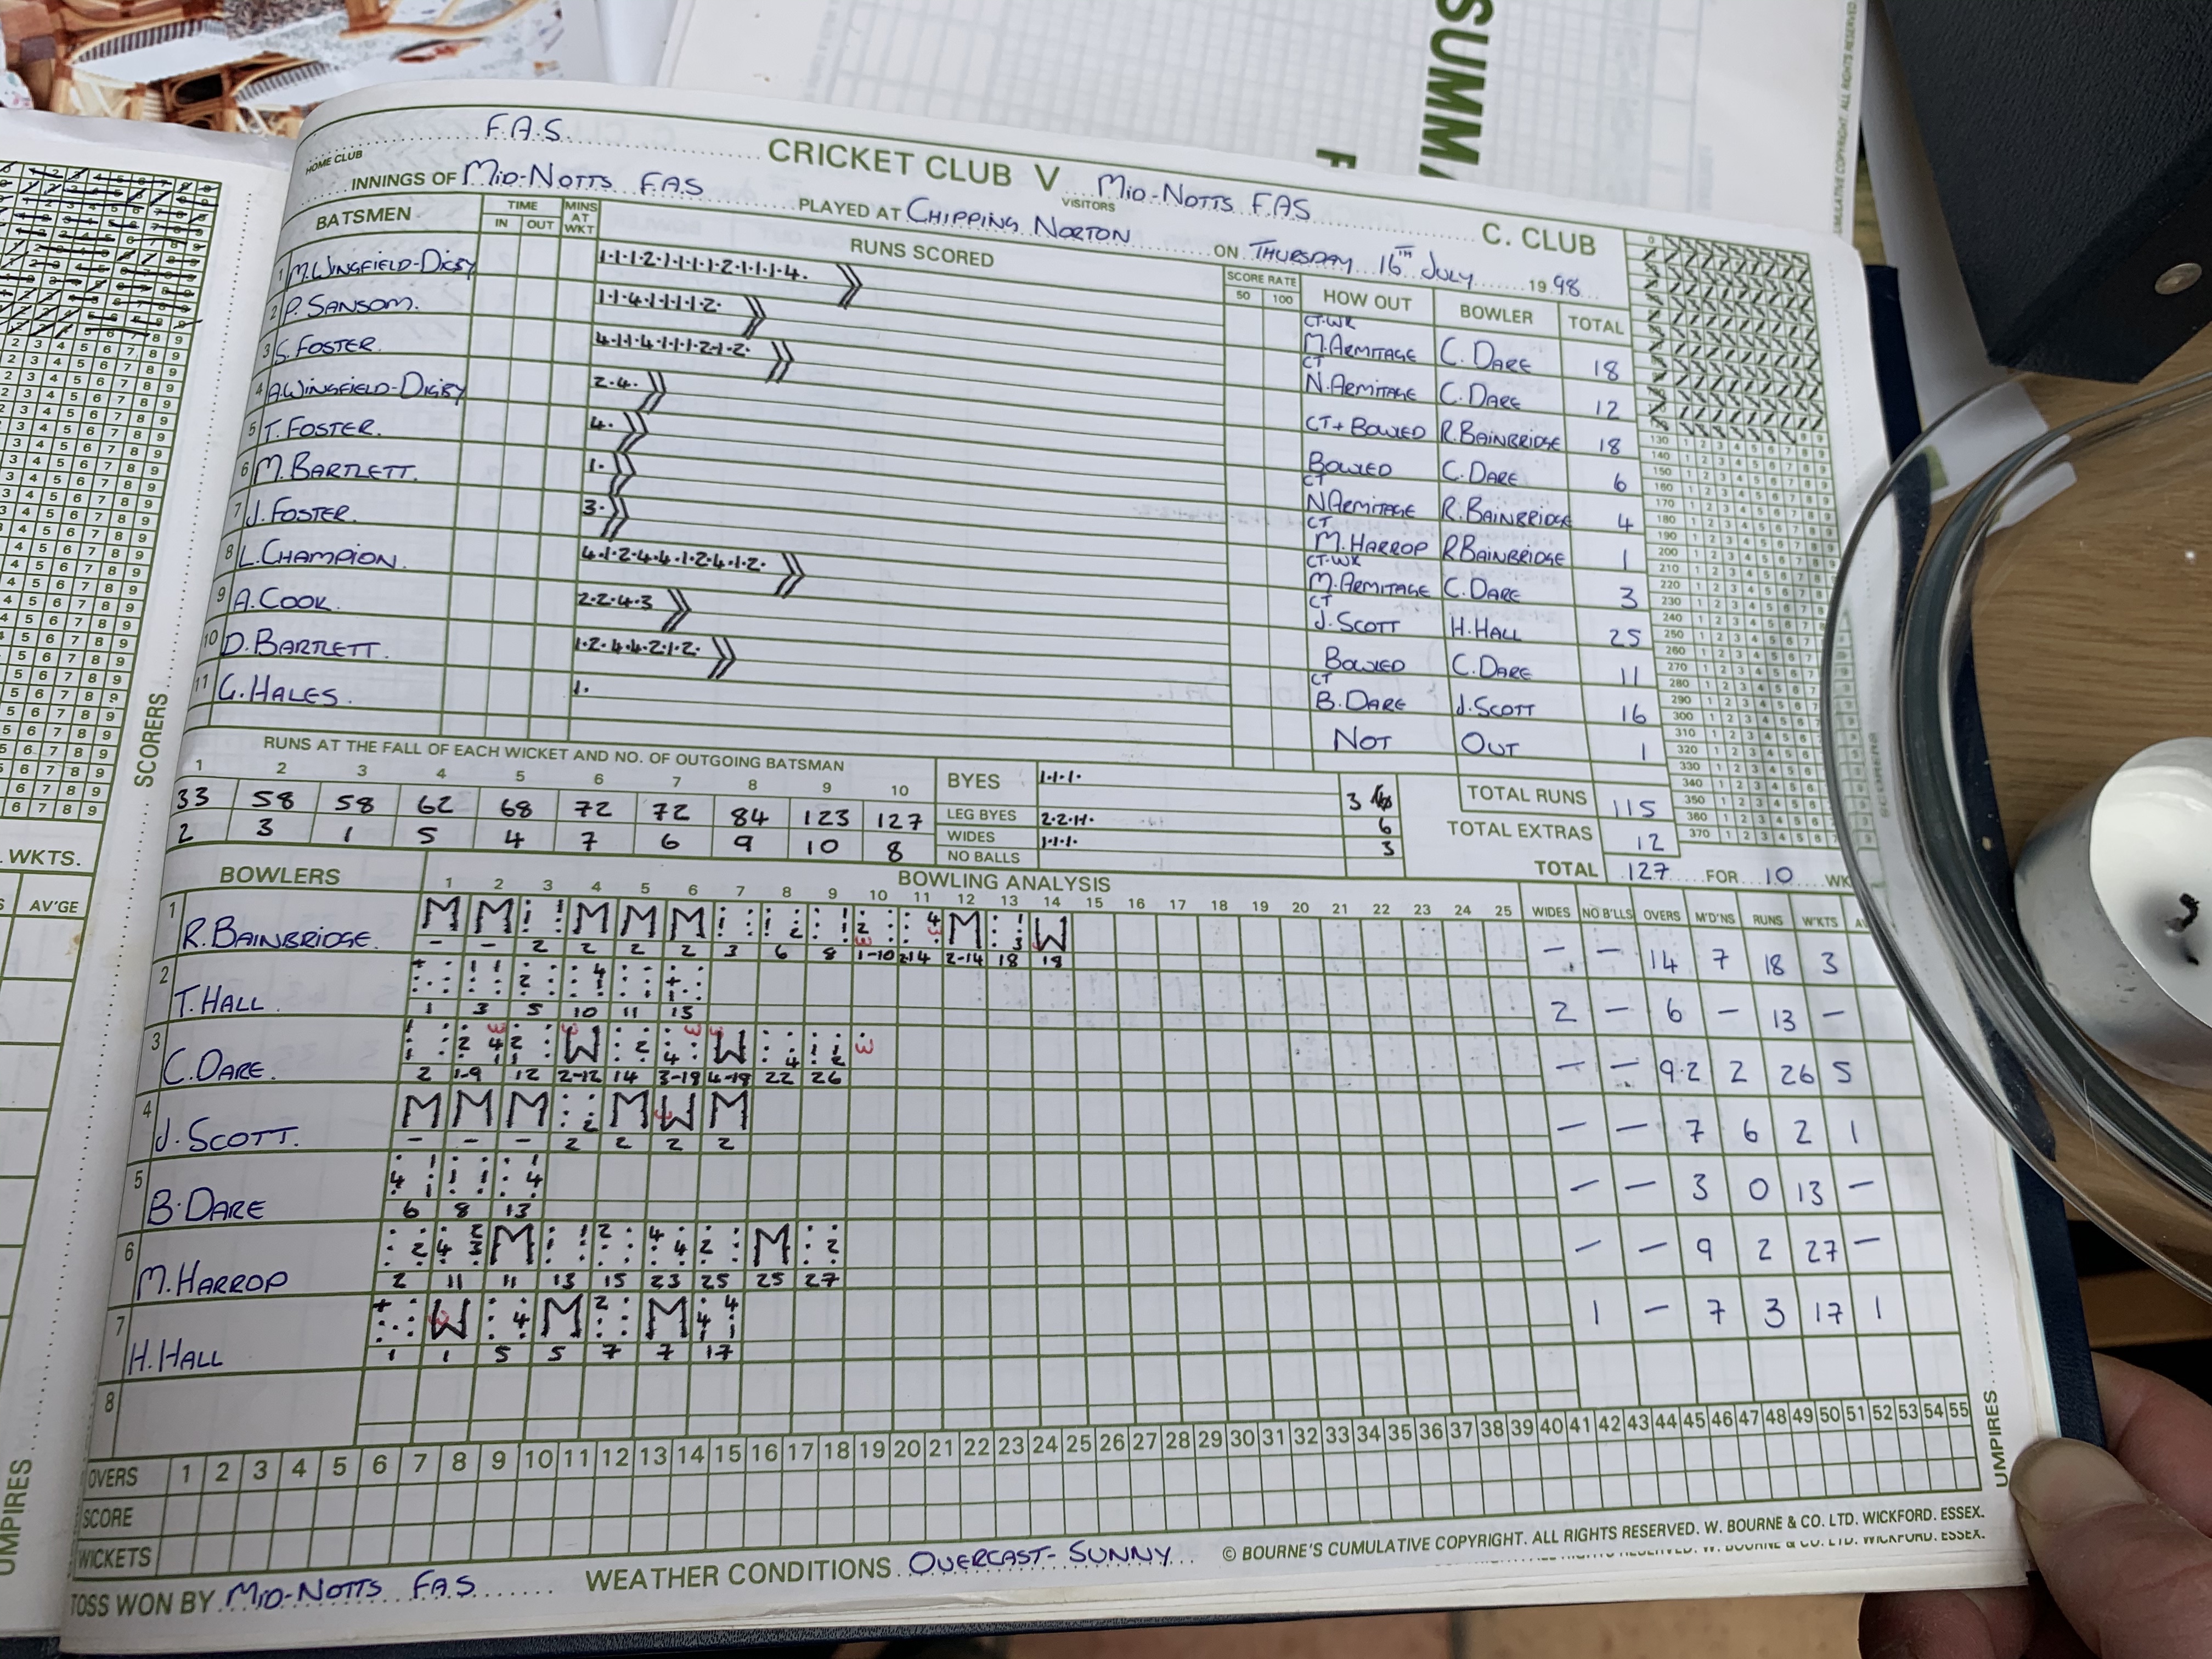 SUMM
F
HOME CLUB F.A.S. CRICKET CLUB V MID-NOTTS F.A.S VISITORS C. CLUB
INNINGS OF MID-NOTTS FAS PLAYED AT CHIPPING NORTON ON THURSDAY 16TH JULY 19.98
BATSMEN TIME IN OUT MINS AT WKT RUNS SCORED SCORE RATE 50 100 HOW OUT BOWLER TOTAL
1 M.WINGFIELD-DIGBY 1·1·1·2·1·1·1·1·2·1·1·1·4. CT-WK M.ARMITAGE C. DARE 18
2 P. SANSOM. 1·1·4·1·1·1·1·2· CT N.ARMITAGE C.DARE 12
3 S.FOSTER. 4·1·1·4·1·1·1·2·1·2· CT + BOWLED R.BAINBRIDGE 18
4 A.WINGFIELD-DIGBY 2·4. BOWLED C. DARE 6
5 T.FOSTER. 4. CT N.ARMITAGE R.BAINBRIDGE 4
6 M.BARTLETT. 1. CT M.HARROP R.BAINBRIDGE 1
7 J.FOSTER. 3. CT-WK M.ARMITAGE C. DARE 3
8 L.CHAMPION. 4·1·2·4·4·1·2·4·1·2· CT J.SCOTT H.HALL 25
9 A.COOK. 2·2·4·3 BOWLED C.DARE 11
10 D.BARTLETT. 1·2·4·4·2·1·2· CT B.DARE J.SCOTT 16
11 G.HALES. 1. NOT OUT 1
RUNS AT THE FALL OF EACH WICKET AND NO. OF OUTGOING BATSMAN
1 2 3 4 5 6 7 8 9 10
33 58 58 62 68 72 72 84 123 127
2 3 1 5 4 7 6 9 10 8
BYES 1·1·1· 3
LEG BYES 2·2·1·1· 6
WIDES 1·1·1· 3
NO BALLS
TOTAL RUNS 115
TOTAL EXTRAS 12
TOTAL 127 FOR 10 WK
BOWLERS BOWLING ANALYSIS
1 2 3 4 5 6 7 8 9 10 11 12 13 14 15 16 17 18 19 20 21 22 23 24 25 WIDES NO B'LLS OVERS M'D'NS RUNS W'KTS
1 R.BAINBRIDGE. M M M M M M W
– – 2 2 2 2 3 6 8 1-10 2-14 2-14 18 18 – – 14 7 18 3
2 T.HALL 1 3 5 10 11 15 2 – 6 – 13 –
3 C.DARE. W W
2 1-9 12 2-12 14 3-18 4-18 22 26 – – 9·2 2 26 5
4 J.SCOTT. M M M M W M
– – – 2 2 2 2 – – 7 6 2 1
5 B.DARE 6 8 13 – – 3 0 13 –
6 M.HARROP M M
2 11 11 13 15 23 25 25 27 – – 9 2 27 –
7 H.HALL W M M
1 1 5 5 7 7 17 1 – 7 3 17 1
8
OVERS 1 2 3 4 5 6 7 8 9 10 11 12 13 14 15 16 17 18 19 20 21 22 23 24 25 26 27 28 29 30 31 32 33 34 35 36 37 38 39 40 41 42 43 44 45 46 47 48 49 50 51 52 53 54 55
SCORE
WICKETS
TOSS WON BY MID-NOTTS FAS WEATHER CONDITIONS OVERCAST-SUNNY © BOURNE'S CUMULATIVE COPYRIGHT. ALL RIGHTS RESERVED. W. BOURNE & CO. LTD. WICKFORD. ESSEX.
UMPIRES
SCORERS
WKTS.
AV'GE
UMPIRES